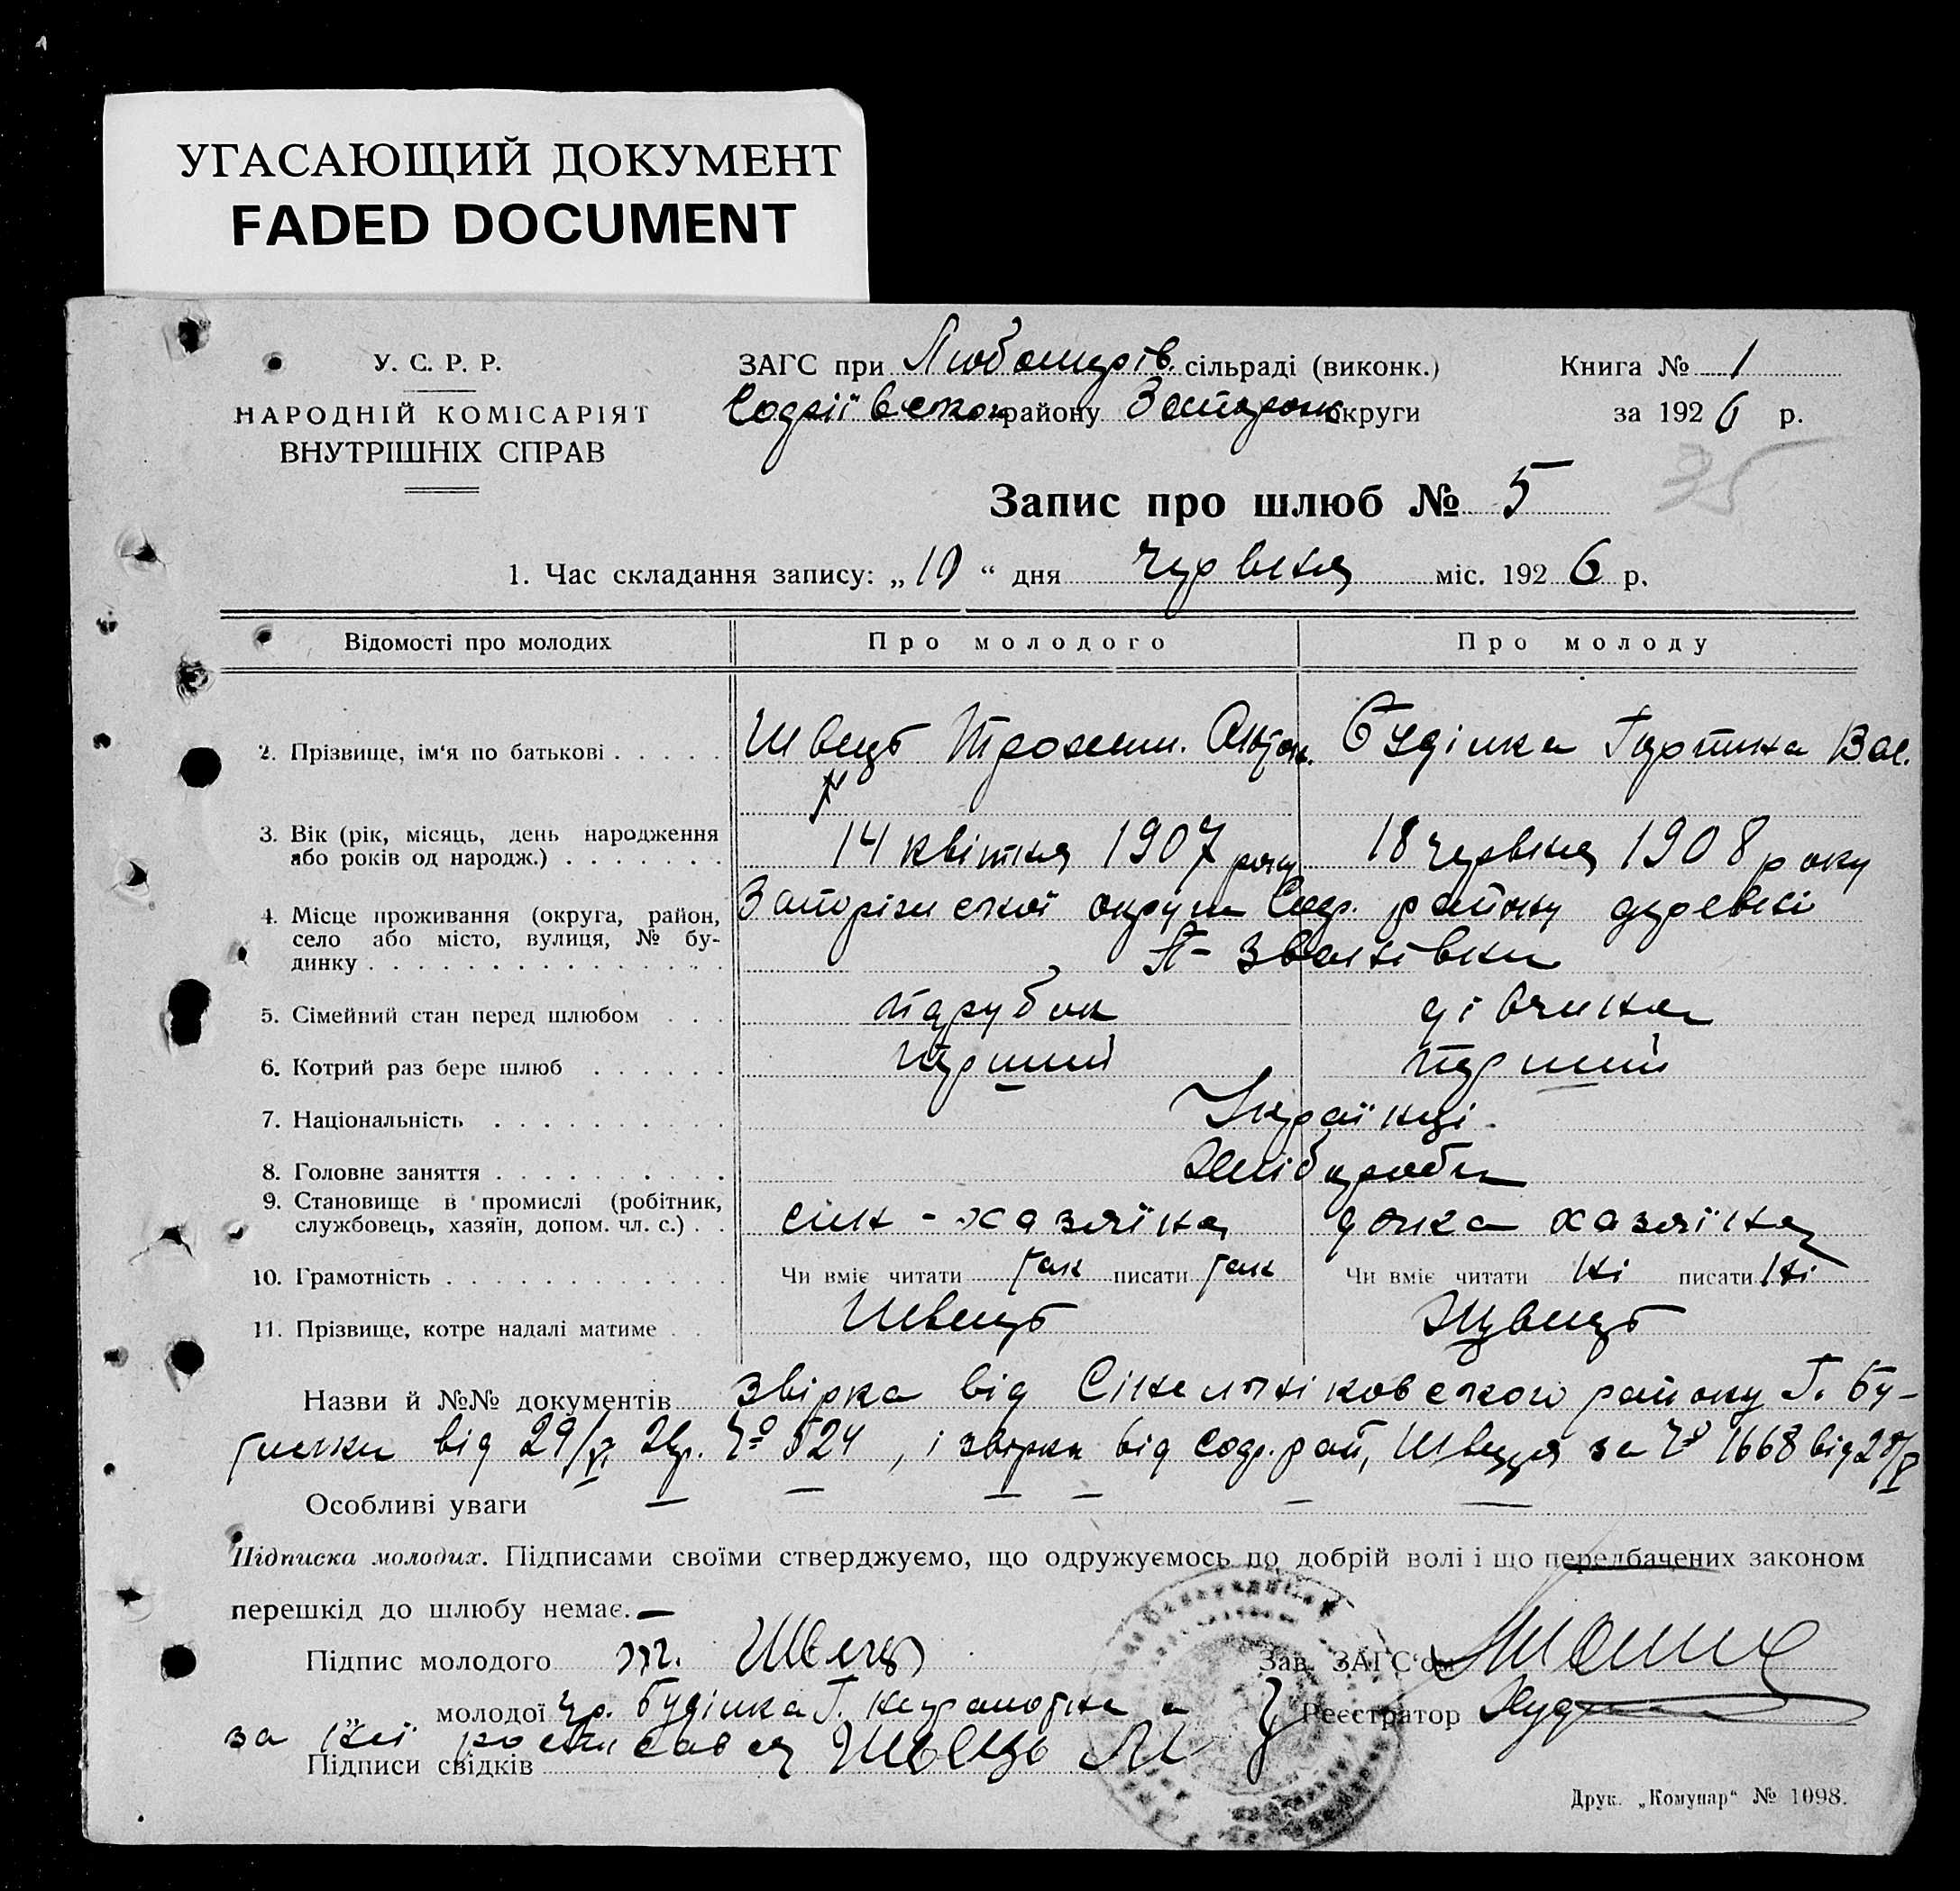 УГАСАЮЩИЙ ДОКУМЕНТ
FADED DOCUMENT
У. С. Р. Р.
НАРОДНІЙ КОМІСАРІЯТ
ВНУТРІШНІХ СПРАВ
ЗАГС при Любомирів. сільраді (виконк.)
Софіївском району Запорожс округи
Книга № 1
за 1926 р.
35
Запис про шлюб № 5
1. Час складання запису: „10“ дня червеня міс. 1926 р.
Відомості про молодих Про молодого Про молоду
2. Прізвище, ім‘я по батькові Швець Трохим. Антон. Будінка Гортина Вас.
3. Вік (рік, місяць, день народження
або років од народж.) 14 квітня 1907 року 18 червеня 1908 року
4. Місце проживання (округа, район,
село або місто, вулиця, № будинку Запорізьської округи Соф. району деревні
5. Сімейний стан перед шлюбом парубок дівчина
6. Котрий раз бере шлюб перший перший
7. Національність Українці.
8. Головне заняття Хлібороби
9. Становище в промислі (робітник,
службовець, хазяїн, допом. чл. с.) син - хазяїна дочка хазяїна
10. Грамотність Чи вміє читати так писати так Чи вміє читати ні писати ні
11. Прізвище, котре надалі матиме Швець Швець
Назви й №№ документів звірка від Сінельніковського району Г. Бу-
від 29/V 26р. № 524, і звірка від Соф. рай, Швеця за № 1668 від 28/V
Особливі уваги — — — — — —
Підписка молодих. Підписами своїми стверджуємо, що одружуємось по добрій волі і що передбачених законом
перешкід до шлюбу немає.—
Підпис молодого Т. Швець Зав. ЗАГС‘ом
молодої гр. Будінка Г. неграмотна а Реєстратор
за неї росписався Швець
Підписи свідків
Друк. „Комунар“ № 1098.